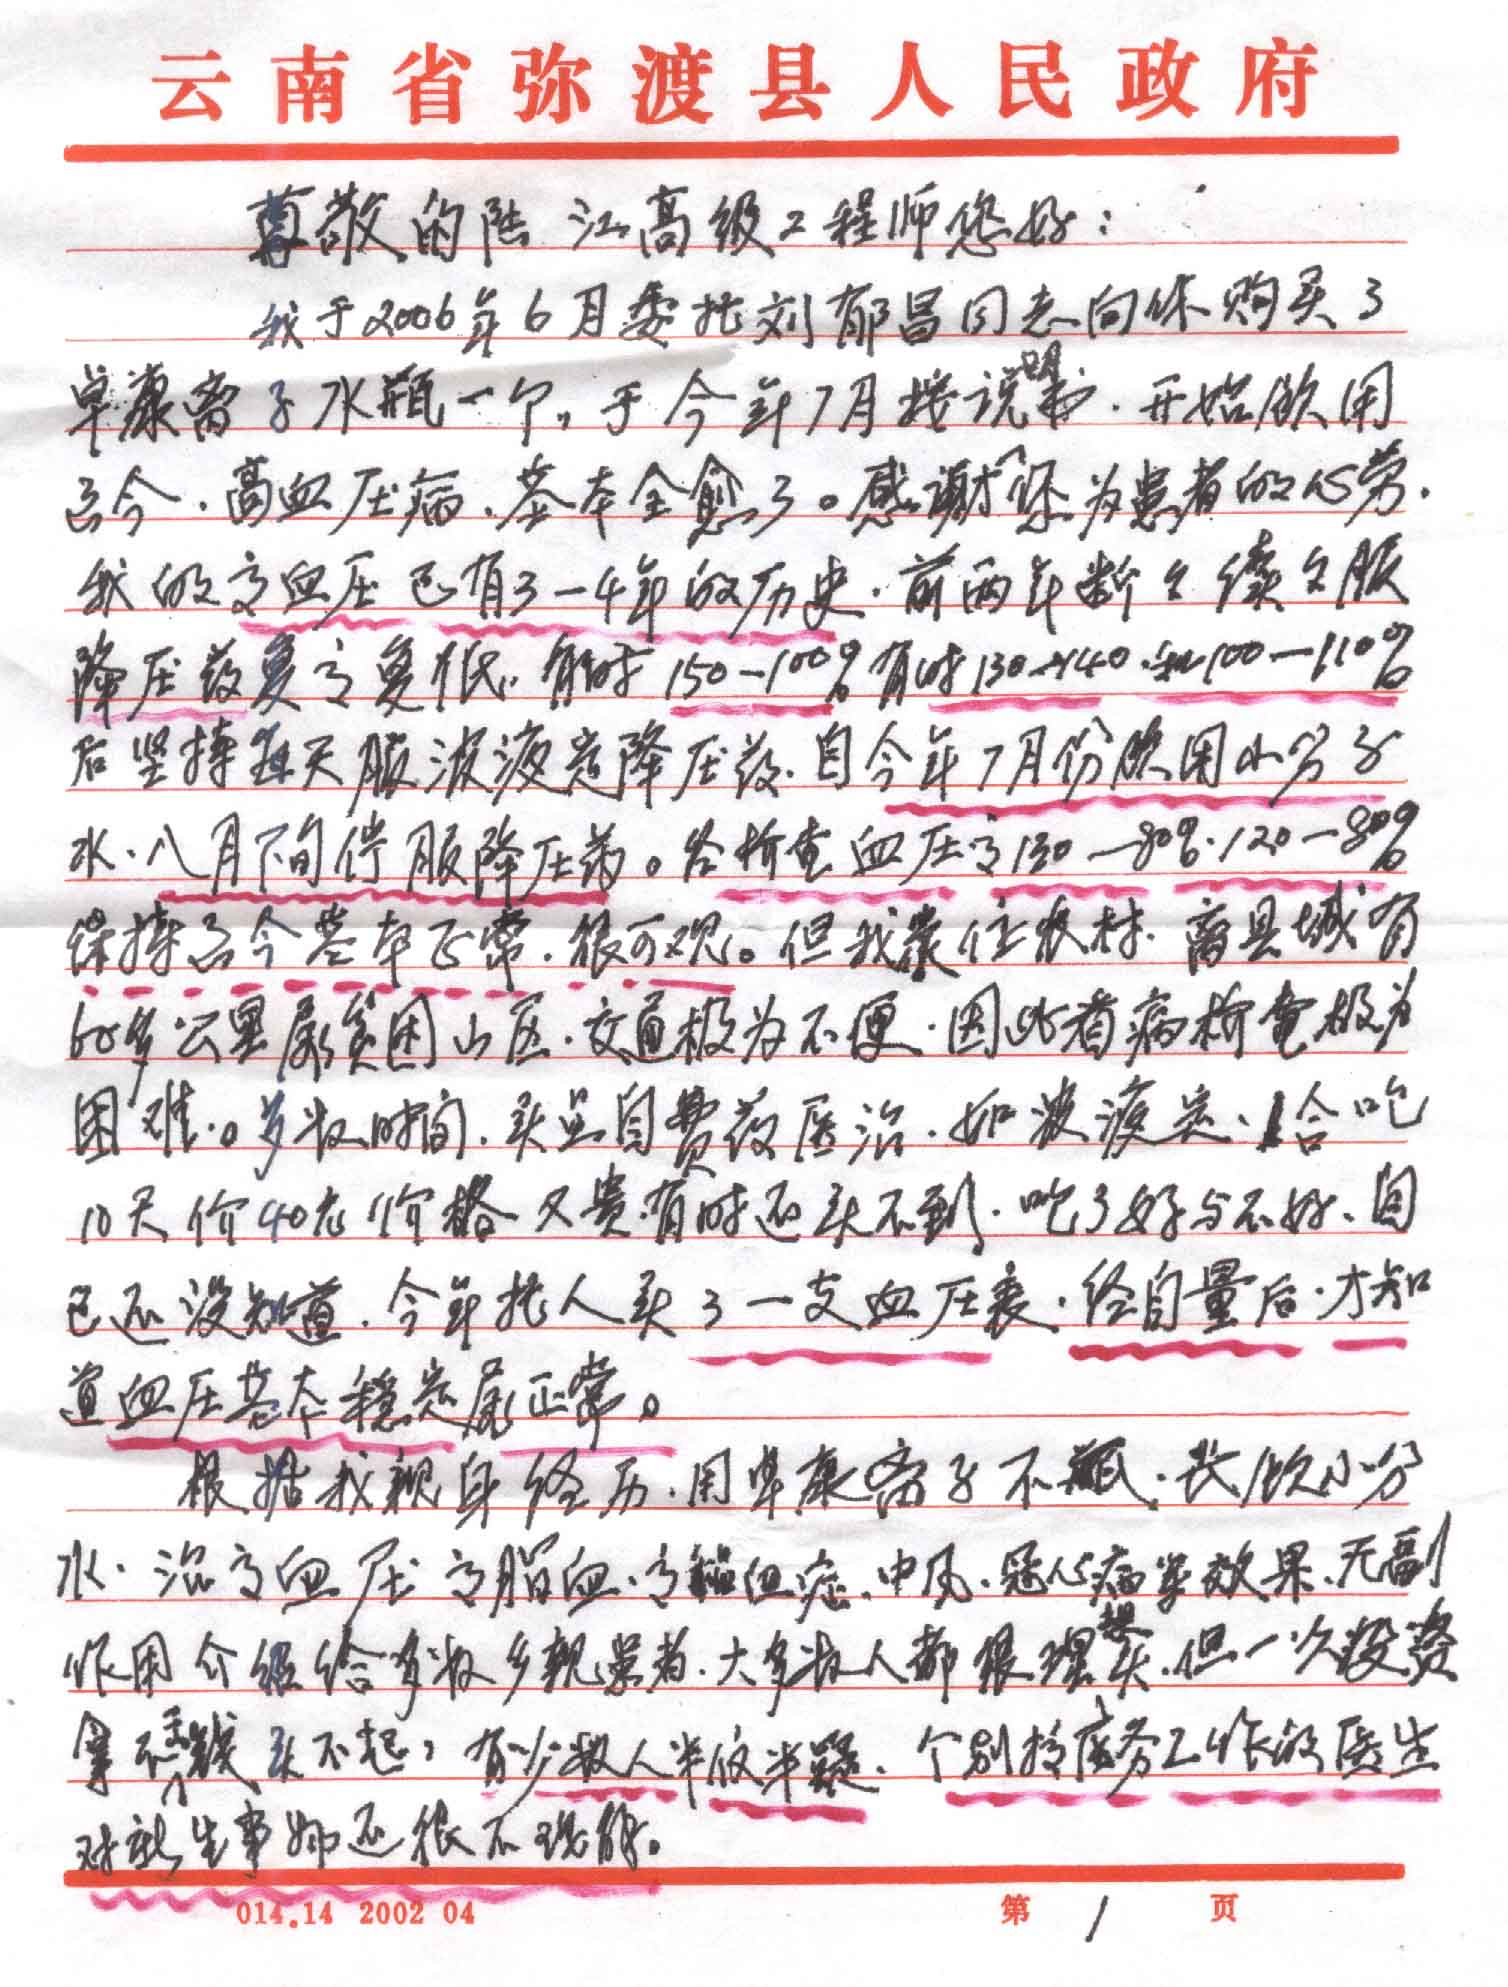 云南省弥渡县人民政府
尊敬的陆江高级工程师您好：
我于2006年6月委托刘郁昌同志向你购买了
卓康离子水瓶一个，于今年7月按说明书，开始饮用
至今，高血压病，基本全愈了。感谢你为患者的心劳，
我的高血压已有3—4年的历史，前两年断断续续服
降压药复高复低，有时150—100%有时130—140，和100—110%
后坚持每天服波液定降压药，自今年7月份饮用小分子
水，八月下旬停服降压药。各检查血压高130—80%，120—80%
保持至今基本正常，很可观。但我家住农村，离县城有
60多公里属贫困山区，交通极为不便，因此看病检查极为
困难。多数时间，买点自费药医治，如波液定，1合吃
10天价40元价格又贵，有时还买不到，吃了好与不好，自
己还没知道，今年托人买了一支血压表，经自量后，才知
道血压基本稳定属正常。
根据我亲身经历，用卓康离子水瓶，长饮小分
水，治高血压高脂血，高血症，中风，冠心病等效果，无副
作用介绍给多数乡亲患者，大多数人都很理想买，但一次投资
拿不出钱买不起，有少数人半信半疑，个别搞医务工作的医生
对新生事物还很不理解。
014.14 2002 04 第 1 页